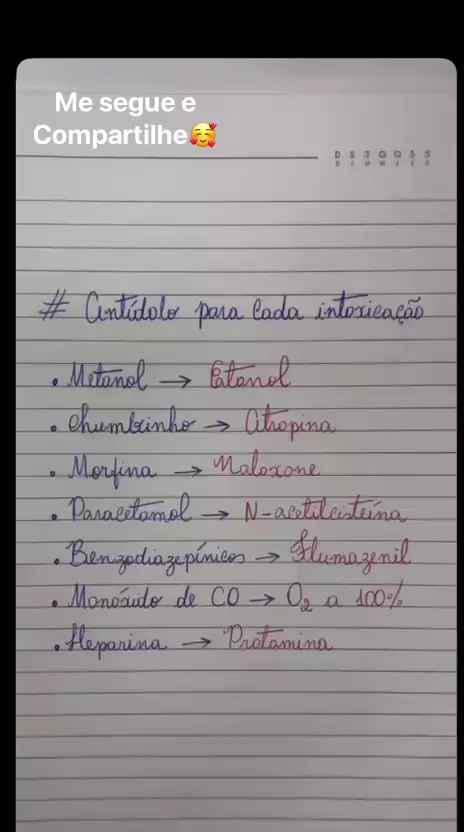 Me segue e
Compartilhe🥰
D S T Q Q S S
# Antídoto para Cada intoxicação
• Metanol → Etanol
• Chumbinho → Atropina
• Morfina → Naloxone
• Paracetamol → N-acetilcisteína
• Benzodiazepínicos → Flumazenil
• Monóxido de CO → O₂ a 100%
• Heparina → Protamina